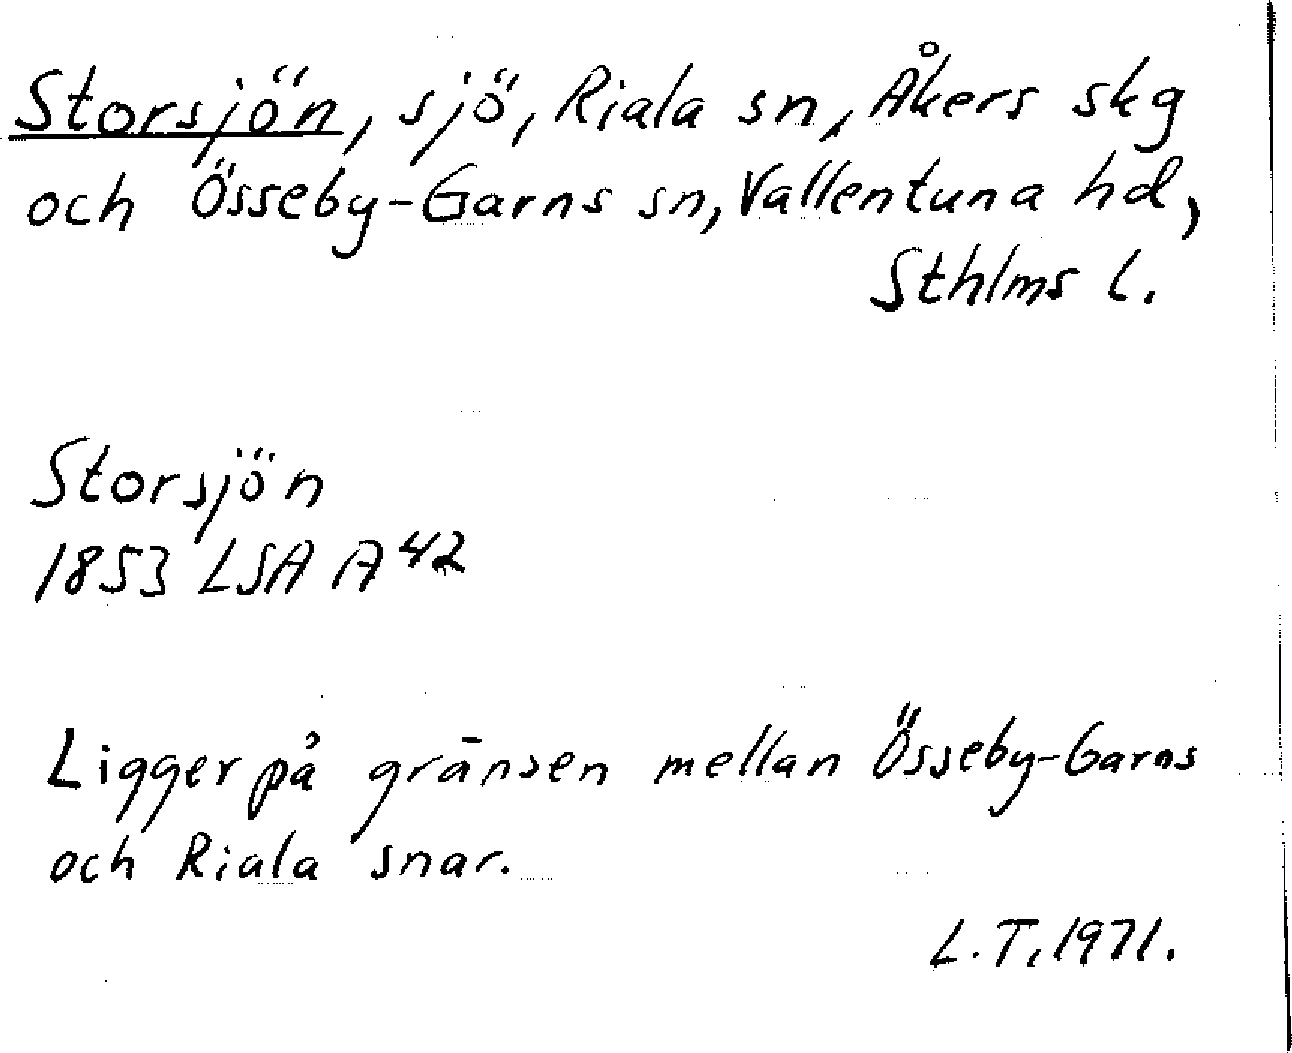 Storsjön, sjö, Riala sn, Åkers skg
och Össeby-Garns sn, Vallentuna hd,
Sthlms l.
Storsjön
1853 LSA A 42
Ligger på gränsen mellan Össeby-Garns
och Riala snar.
L.T. 1971.